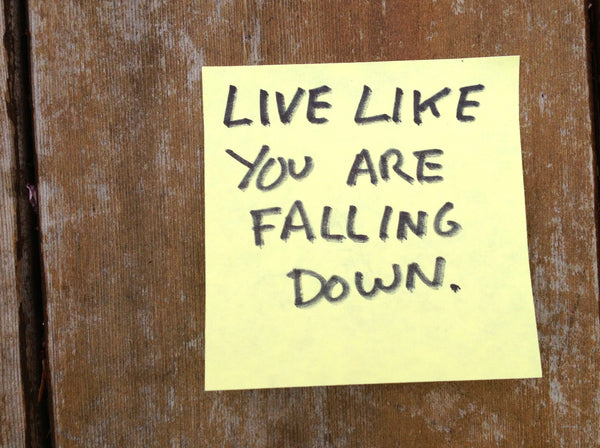 LIVE LIKE
YOU ARE
FALLING
DOWN.